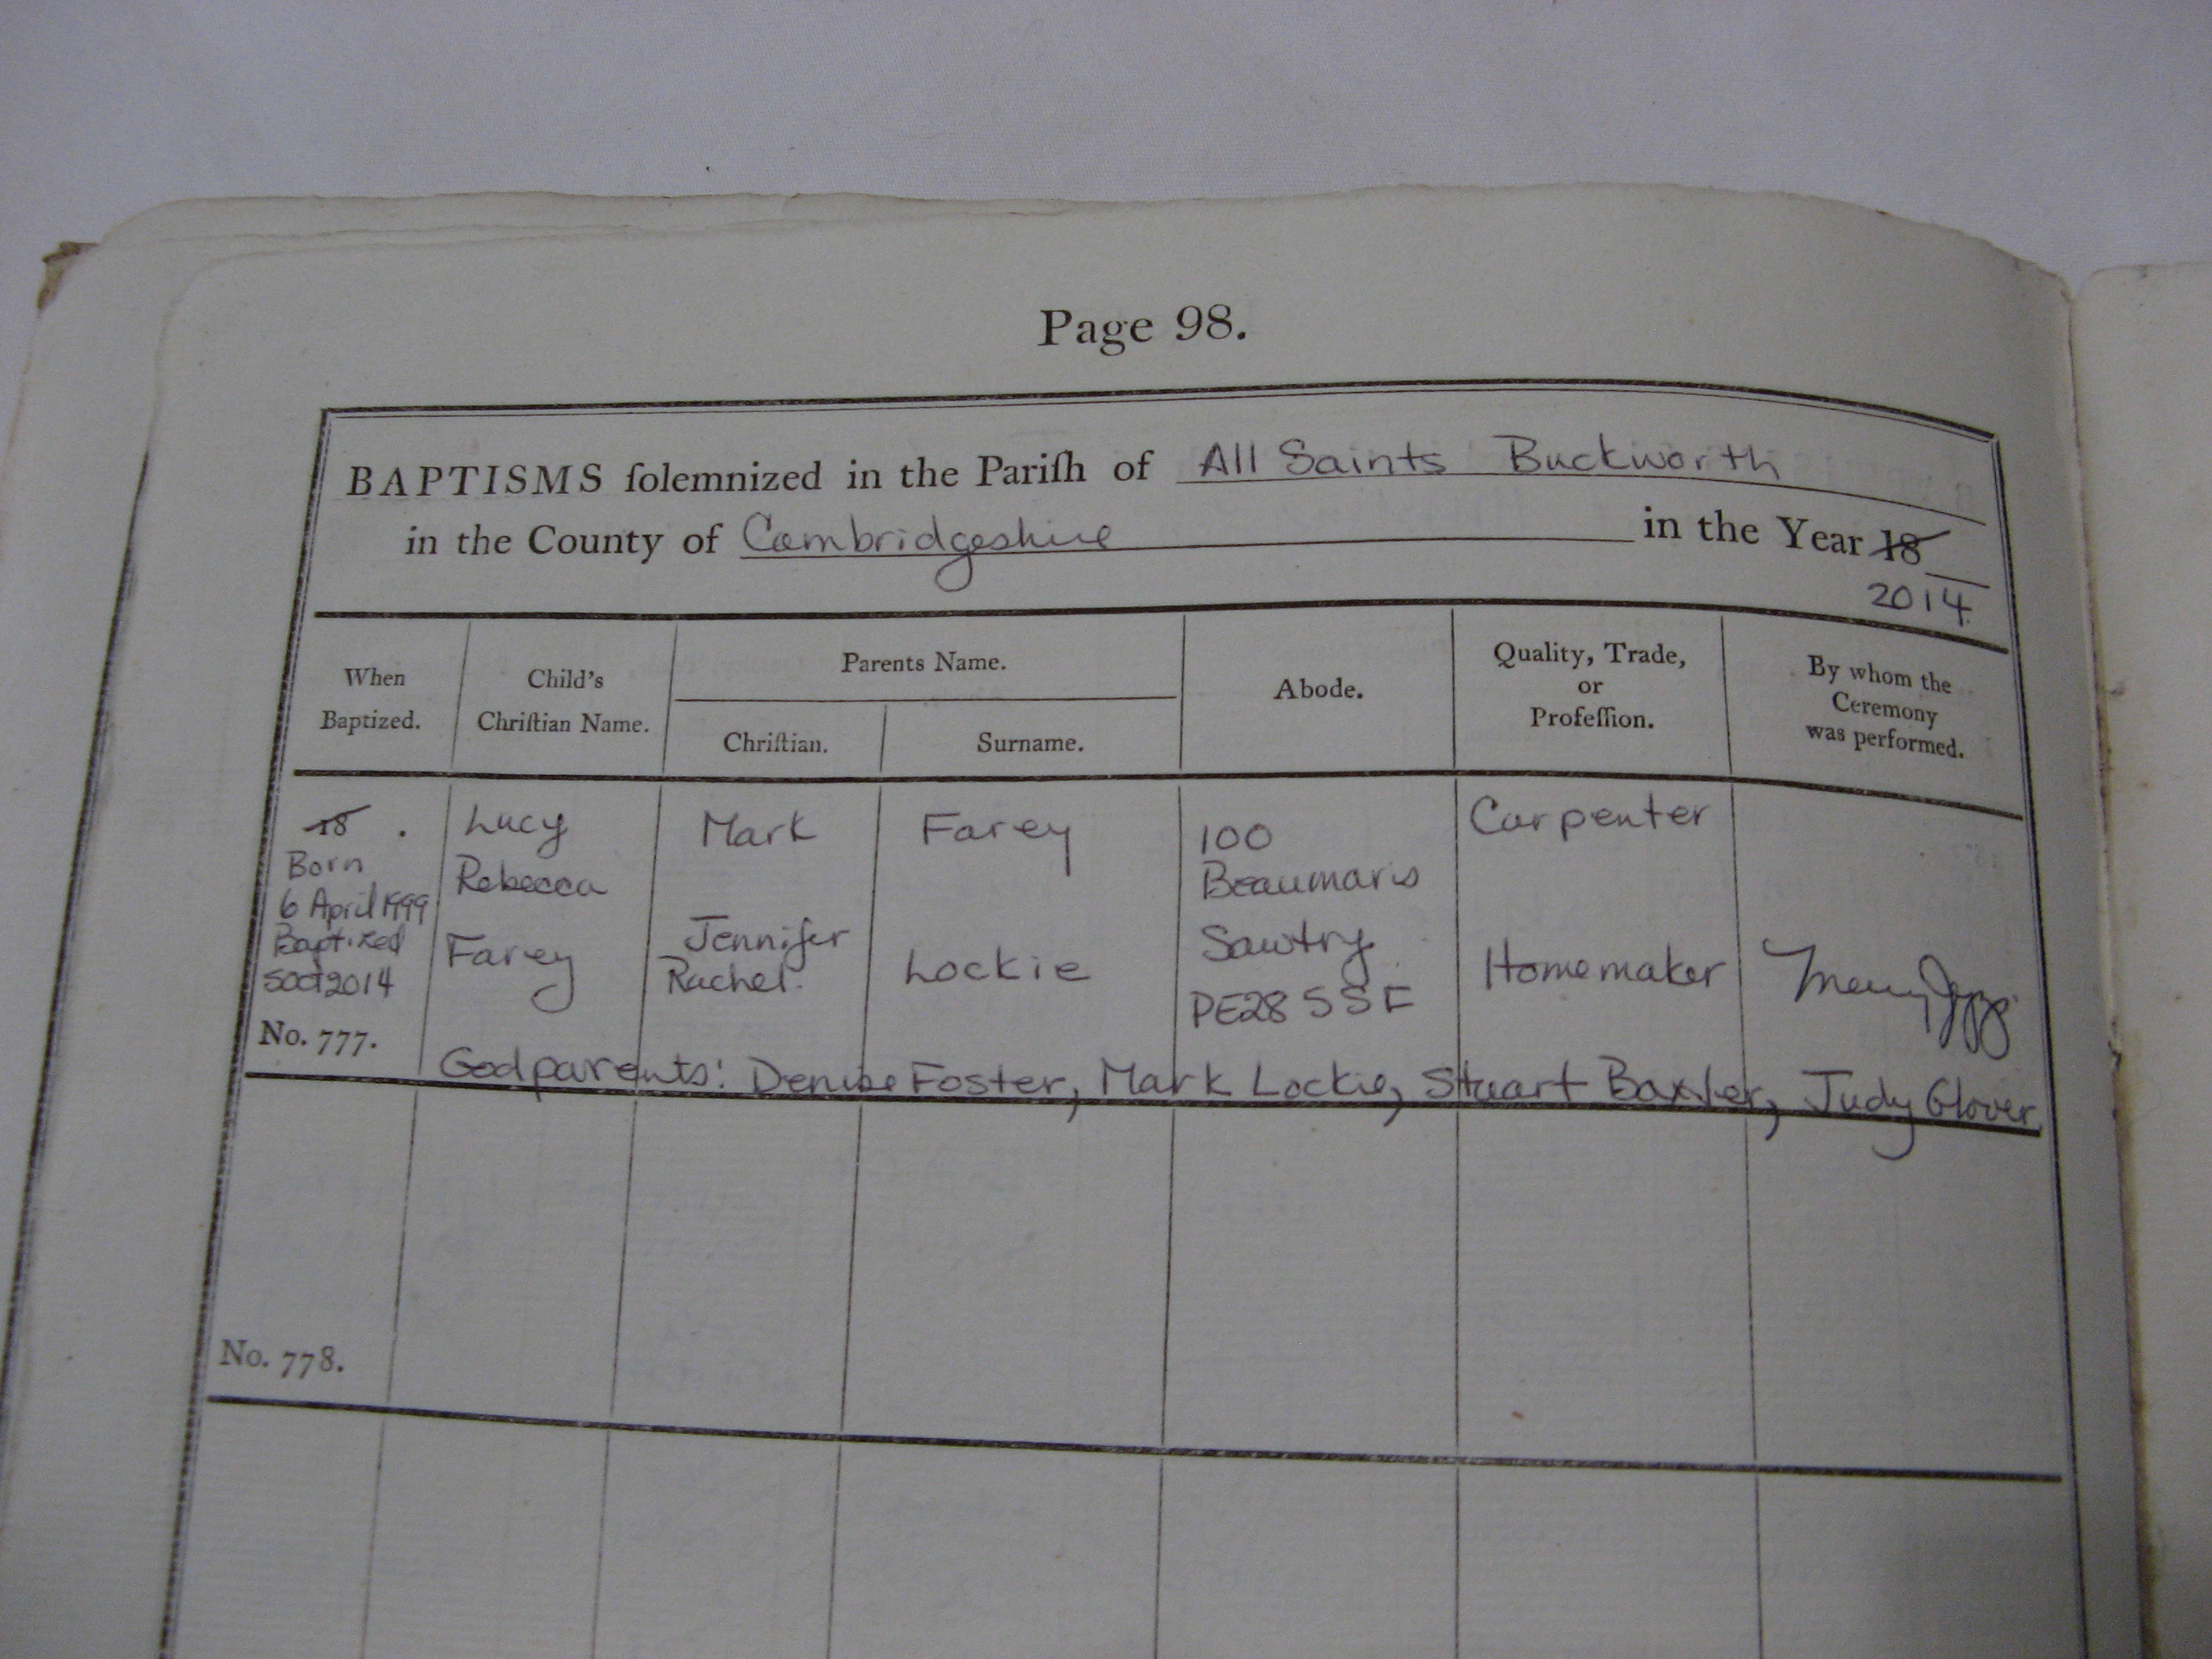 Page 98.
BAPTISMS ſolemnized in the Pariſh of All Saints Buckworth
in the County of Cambridgeshire in the Year 18
2014
When
Baptized.
Child's
Chriſtian Name.
Parents Name.
Chriſtian.
Surname.
Abode.
Quality, Trade,
or
Profeſſion.
By whom the
Ceremony
was performed.
18 .
Born
6 April 1999
Baptized
5 Oct 2014
No. 777.
Lucy
Rebecca
Farey
Mark
Jennifer
Rachel.
Farey
Lockie
100
Beaumaris
Sawtry
PE28 5SF
Carpenter
Homemaker
Godparents: Denise Foster, Mark Lockie, Stuart Baxter, Judy Glover
No. 778.